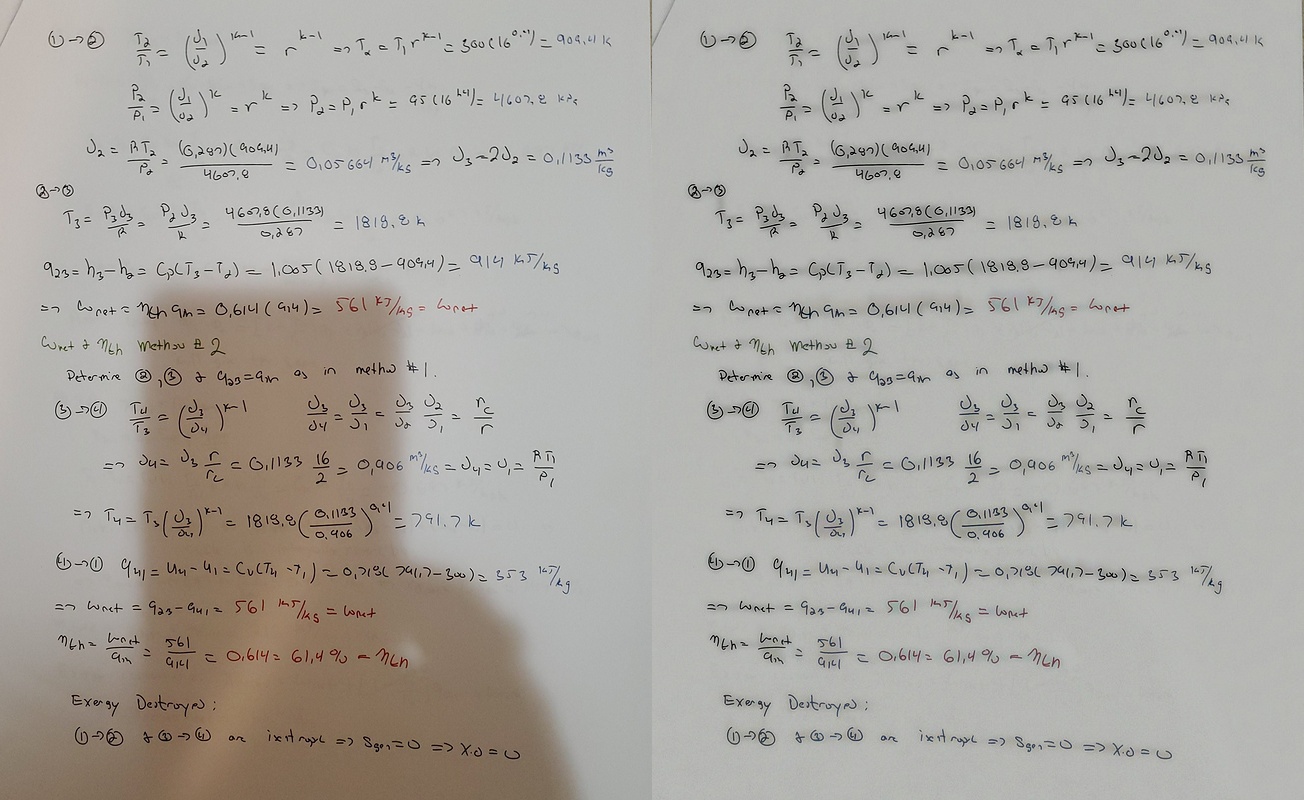 ①→② T₂/T₁ = (υ₁/υ₂)^(k-1) = r^(k-1) => T₂ = T₁r^(k-1) = 300(16^0.4) = 909.4 K
P₂/P₁ = (υ₁/υ₂)^k = r^k => P₂ = P₁r^k = 95(16^1.4) = 4607.8 kPa
υ₂ = RT₂/P₂ = (0,287)(909.4)/4607.8 = 0,05664 m³/kg => υ₃ = 2υ₂ = 0,1133 m³/kg
②→③
T₃ = P₃υ₃/R = P₂υ₃/R = 4607,8(0,1133)/0,287 = 1818.8 K
q₂₃ = h₃-h₂ = Cp(T₃-T₂) = 1,005(1818.8-909,4) = 914 kJ/kg
=> ωnet = ηth qin = 0,614(914) = 561 kJ/kg = ωnet
ωnet & ηth Method # 2
Determine ②,③ & q₂₃=qin as in method #1.
③→④ T₄/T₃ = (υ₃/υ₄)^(k-1) υ₃/υ₄ = υ₃/υ₁ = υ₃/υ₂ υ₂/υ₁ = rc/r
=> υ₄ = υ₃ r/rc = 0,1133 16/2 = 0,906 m³/kg = υ₄ = υ₁ = RT₁/P₁
=> T₄ = T₃(υ₃/υ₄)^(k-1) = 1818,8(0,1133/0,906)^0,4 = 791.7 K
④→① q₄₁ = u₄-u₁ = Cv(T₄-T₁) = 0,718(791,7-300) = 353 kJ/kg
=> ωnet = q₂₃-q₄₁ = 561 kJ/kg = ωnet
ηth = ωnet/qin = 561/914 = 0,614 = 61,4% = ηth
Exergy Destroyed:
①→② & ③→④ are isentropic => Sgen=0 => X.D=0
①→② T₂/T₁ = (υ₁/υ₂)^(k-1) = r^(k-1) => T₂ = T₁r^(k-1) = 300(16^0.4) = 909.4 K
P₂/P₁ = (υ₁/υ₂)^k = r^k => P₂ = P₁r^k = 95(16^1.4) = 4607.8 kPa
υ₂ = RT₂/P₂ = (0,287)(909.4)/4607.8 = 0,05664 m³/kg => υ₃ = 2υ₂ = 0,1133 m³/kg
②→③
T₃ = P₃υ₃/R = P₂υ₃/R = 4607,8(0,1133)/0,287 = 1818.8 K
q₂₃ = h₃-h₂ = Cp(T₃-T₂) = 1,005(1818.8-909,4) = 914 kJ/kg
=> ωnet = ηth qin = 0,614(914) = 561 kJ/kg = ωnet
ωnet & ηth Method # 2
Determine ②,③ & q₂₃=qin as in method #1.
③→④ T₄/T₃ = (υ₃/υ₄)^(k-1) υ₃/υ₄ = υ₃/υ₁ = υ₃/υ₂ υ₂/υ₁ = rc/r
=> υ₄ = υ₃ r/rc = 0,1133 16/2 = 0,906 m³/kg = υ₄ = υ₁ = RT₁/P₁
=> T₄ = T₃(υ₃/υ₄)^(k-1) = 1818,8(0,1133/0,906)^0,4 = 791.7 K
④→① q₄₁ = u₄-u₁ = Cv(T₄-T₁) = 0,718(791,7-300) = 353 kJ/kg
=> ωnet = q₂₃-q₄₁ = 561 kJ/kg = ωnet
ηth = ωnet/qin = 561/914 = 0,614 = 61,4% = ηth
Exergy Destroyed:
①→② & ③→④ are isentropic => Sgen=0 => X.D=0